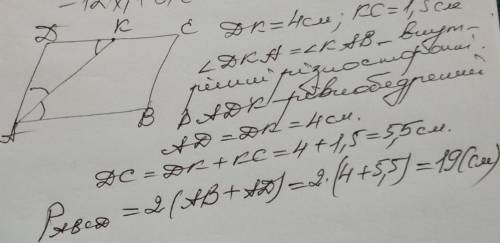 D K C
A B
DK = 4 см; KC = 1,5 см
∠DKA = ∠KAB – внут-
рішні різносторонні.
Δ ADK – рівнобедрений
AD = DK = 4 см.
DC = DK + KC = 4 + 1,5 = 5,5 см.
P ABCD = 2(AB + AD) = 2·(4 + 5,5) = 19 (см)